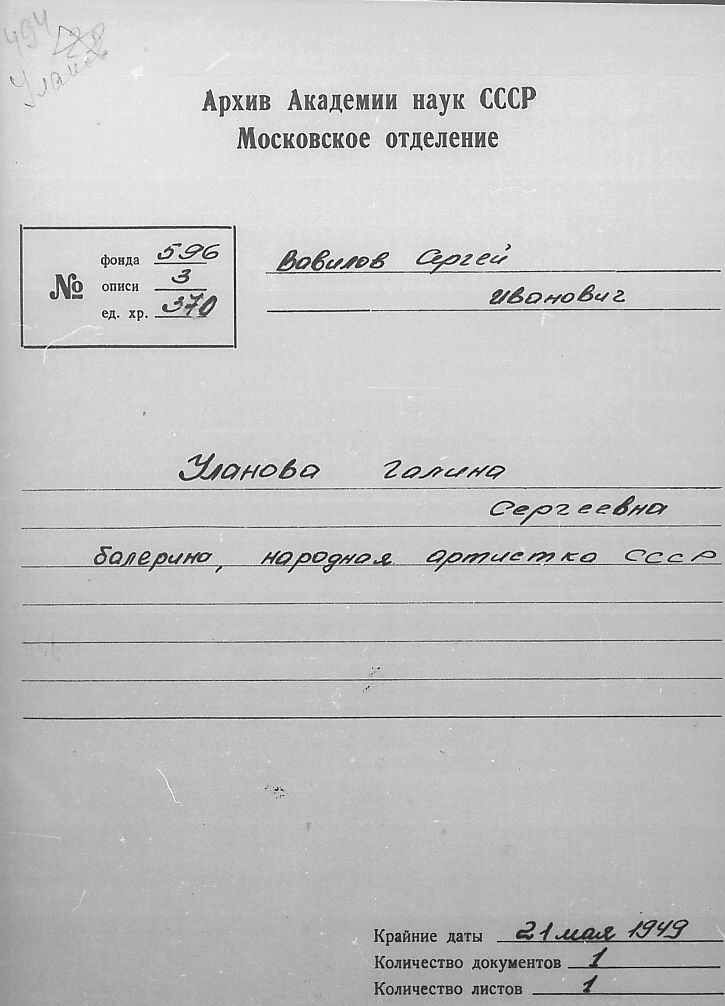 494
Улано
Архив Академии наук СССР
Московское отделение
№
фонда 596
описи 3
ед. хр. 370
Вавилов Сергей
Иванович
Уланова Галина
Сергеевна
балерина, народная артистка СССР
Крайние даты 21 мая 1949
Количество документов 1
Количество листов 1